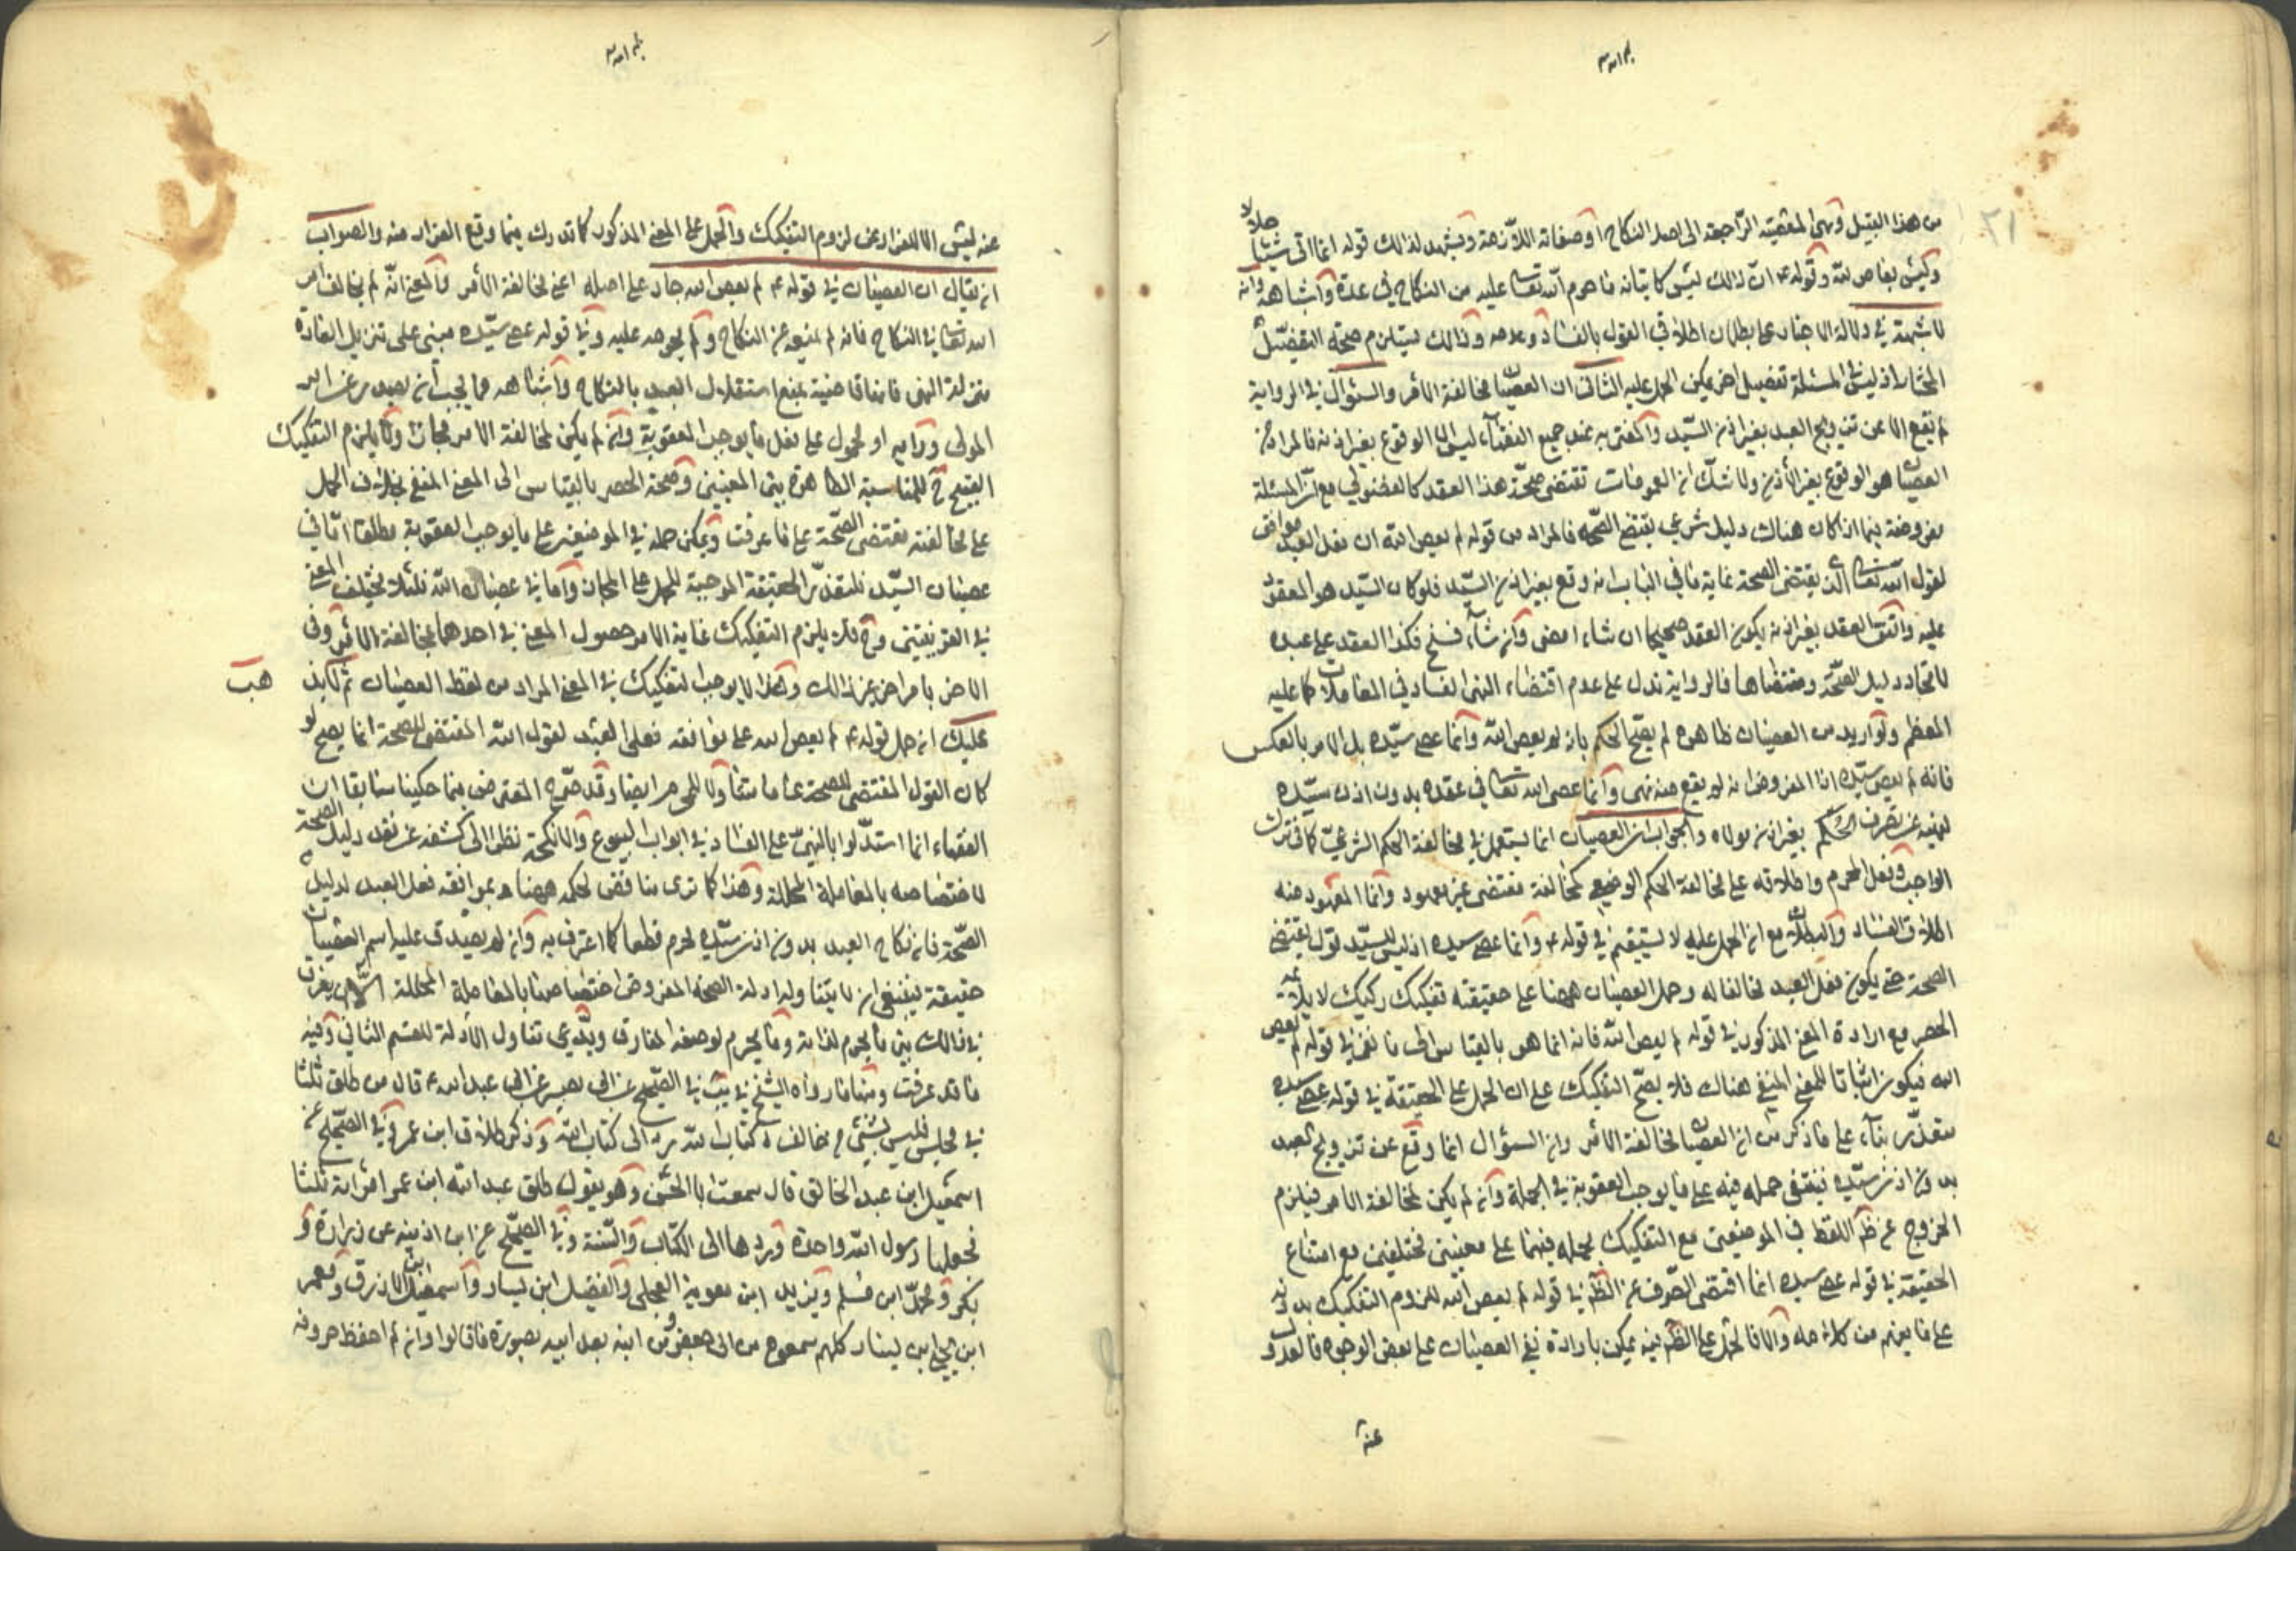 من هذا القبيل وهي المعصية الراجعة الى اصل النكاح او صفاته اللازمة ويشهد لذلك قوله انما اتى شيئا حلالا
وليس بعاص لله وقوله ع ان ذلك ليس كاتيانه ما حرم الله تعالى عليه من النكاح في عدة واشباهه وانه
لا شبهة في دلالة الاخبار على بطلان اطلاق القول بالفساد وعدمه وذلك يستلزم صحة التفصيل
المختار اذ ليس في المسئلة تفصيل اخر يمكن الحمل عليه الثاني ان العصيان مخالفة الامر والسؤال في الرواية
لم يقع الا عن تزويج العبد بغير اذن السيد والمفتى به عند جميع الفقهاء ليس الا الوقوع بغير اذنه فالمراد من
العصيان هو الوقوع بغير الاذن ولا شك ان العمومات تقتضى صحة هذا العقد كالفضولي مع ان المسئلة
مفروضة فيما اذا كان هناك دليل شرعي يقتضي الصحة فالمراد من قوله لم يعص الله ان فعل العبد موافق
لقول الله تعالى الذي يقتضى الصحة غاية ما في الباب انه وقع بغير اذن السيد فلو كان السيد هو المعقود
عليه واتفق العقد بغير اذنه يكون العقد صحيحا ان شاء امضى وان شاء فسخ فكذا العقد على عبده
لاتحاد دليل الصحة ومقتضاها فالرواية تدل على عدم اقتضاء النهي الفساد في المعاملات كما عليه
المعظم ولو اريد من العصيان ظاهره لم يصح الحكم بانه لم يعص الله وانما عصى سيده بل الامر بالعكس
فانه لم يعص سيده اذا المفروض انه لم يقع منه نهي وانما عصى الله تعالى في عقده بدون اذن سيده
لنهيه عن تصرف بغير اذن مولاه والجواب ان العصيان انما يستعمل في مخالفة الحكم الشرعي كما في ترك
الواجب وفعل المحرم واطلاقه على مخالفة الحكم الوضعي كمخالفة مقتضى غير معهود وانما المعهود منه
اطلاق الفساد والبطلان مع ان الحمل عليه لا يستقيم في قوله ع وانما عصى سيده اذ ليس للسيد قول يقتضي
الصحة حتى يكون فعل العبد مخالفا له وحمل العصيان ههنا على حقيقته تفكيك ركيك لا يلائمه
الحصر مع ارادة المعنى المذكور في قوله لم يعص الله فانه انما هو بالقياس الى ما نفى في قوله لم يعص
الله فيكون اثباتا للمعنى المنفي هناك فلا يصح التفكيك على ان الحمل على الحقيقة في قوله عصى سيده
متعذر بناء على ما ذكر من ان العصيان مخالفة الامر وان السؤال انما وقع عن تزويج العبد
بدون اذن سيده فينبغى حمله فيه على ما يوجب العقوبة في الجملة وان لم يكن لمخالفة الامر فيلزم
الخروج عن ظ اللفظ في الموضعين مع التفكيك بحمله فيهما على معنيين مختلفين مع امتناع
الحقيقة في قوله عصى سيده انما اقتضى الصرف عن الظ في قوله لم يعص الله للزوم التفكيك بدونه
على ما يعزم من كلامه والا فالحمل على الظ فيه يمكن بارادة نفي العصيان على بعض الوجوه فالعدول
عنه
عنه ليس الا للفرار عن لزوم التفكيك والحمل على المعنى المذكور كما تدرك فيما وقع الفرار منه والصواب
ان يقال ان العصيان في قوله ع لم يعص الله جار على اصله اعني مخالفة الامر والمعنى انه لم يخالف امر
الله تعالى في النكاح فانه لم يمنعه عن النكاح ولم يحرمه عليه وفي قوله عصى سيده مبنى على تنزيل العادة
منزلة النهى فانها قاضية بمنع استقلال العبد بالنكاح واشباهه مما يجب ان يصدر عن امر
المولى ورايه او محمول على فعل ما يوجب العقوبة وان لم يكن لمخالفة الامر مجازا ولا يلزم التفكيك
القبيح ح للمناسبة الظاهرة بين المعنيين وصحة الحصر بالقياس الى المعنى المنفي بخلاف الحمل
على مخالفته مقتضى الصحة على ما عرفت ويمكن حمله في الموضعين على ما يوجب العقوبة مطلقا اما في
عصيان السيد فلتعذر الحقيقة الموجبة للحمل على المجاز واما في عصيان الله فلئلا يختلف المعنى
في القرينتين وح فلا يلزم التفكيك غاية الامر حصول المعنى في احدهما بمخالفة الامر وفى
الاخر بامر اخر غير ذلك وهذا لا يوجب التفكيك في المعنى المراد من لفظ العصيان ثم لا يذهب
عليك ان حمل قوله ع لم يعص الله على موافقة فعل العبد لقول الله المقتضى للصحة انما يصح لو
كان القول المقتضى للصحة عاما متناولا للمحرم ايضا وقد صرح المعترض فيما حكينا سابقا ان
الفقهاء انما استدلوا بالنهي على الفساد في ابواب البيوع والانكحة نظرا الى كشفه عن فقد دليل الصحة
لاختصاصه بالمعاملة المحللة وهذا كما ترى يناقض لحكمه ههنا بموافقة فعل العبد لدليل
الصحة فان نكاح العبد بدون اذن سيده محرم قطعا كما اعترف به وان لم يصدق عليه اسم العصيان
حقيقة فينبغي ان لا يتناوله ادلة الصحة المفروض اختصاصها بالمعاملة المحللة الا ان يفرق
في ذلك بين ما يحرم لذاته وما يحرم لوصفه المفارق ويدعي تناول الادلة للقسم الثاني وفيه
ما قد عرفت ومنها ما رواه الشيخ في يب في الصحيح عن ابى بصير عن ابي عبد الله ع قال من طلق ثلثا
في مجلس فليس بشئ من خالف كتاب الله رد الى كتاب الله وذكر طلاق ابن عمر وفي الصحيح عن
اسمعيل ابن عبد الخالق قال سمعت ابا الحسن وهو يقول طلق عبد الله ابن عمر امراته ثلثا
فجعلها رسول الله واحدة وردها الى الكتاب والسنة وفي الصحيح عن ابن اذينة عن زرارة و
بكير ومحمد ابن مسلم وبريد ابن معوية العجلي والفضيل ابن يسار واسمعيل ابن الازرق ومعمر
ابن يحيى ابن كلهم سمعوه من ابى جعفر ومن ابنه بعد ابيه بصورة ما قالوا وان لم احفظ حروفه